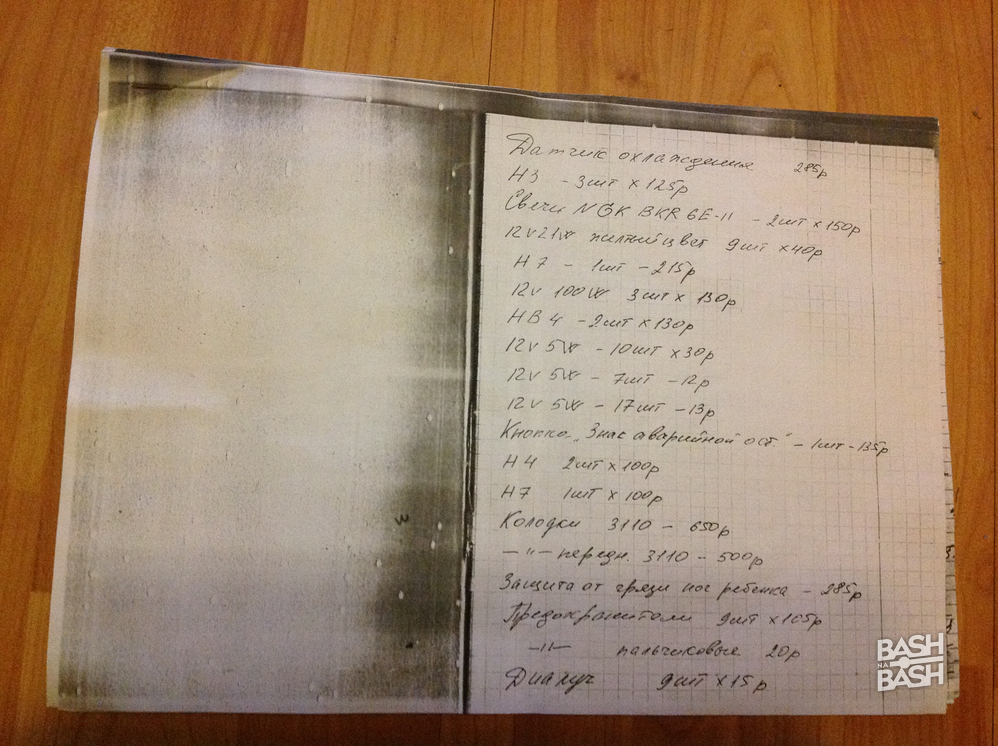 Датчик охлаждения 285р
Н3 - 3шт х 125р
Свечи NGK BKR 6E-11 - 2шт х 150р
12v 21W желтый цвет 9шт х 40р
Н7 - 1шт - 215р
12v 100W 3шт х 130р
НВ4 - 2шт х 130р
12v 5W - 10шт х 30р
12v 5W - 7шт - 12р
12v 5W - 17шт - 13р
Кнопка „Знак аварийной ост" - 1шт - 135р
Н4 2шт х 100р
Н7 1шт х 100р
Колодки 3110 - 650р
—"— передн. 3110 - 500р
Защита от грязи ног ребенка - 285р
Предохранители 9шт х 105р
—"— пальчиковые 20р
Диалуч 9шт х 15р
BASH
NA
BASH